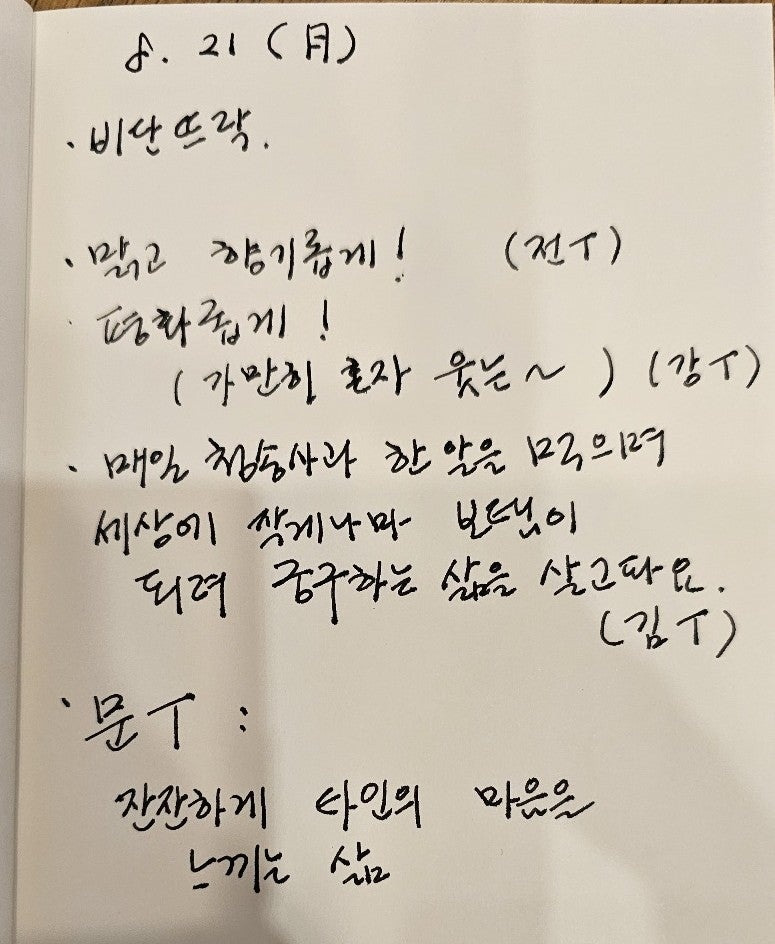 8. 21 (月)
· 비단뜨락.
· 맑고 향기롭게! (전T)
· 평화롭게!
(가만히 혼자 웃는~ ) (강T)
· 매일 청송사과 한 알을 먹으며
세상에 작게나마 보탬이
되려 궁구하는 삶을 살고파요.
(김T)
· 문T :
잔잔하게 타인의 마음을
느끼는 삶